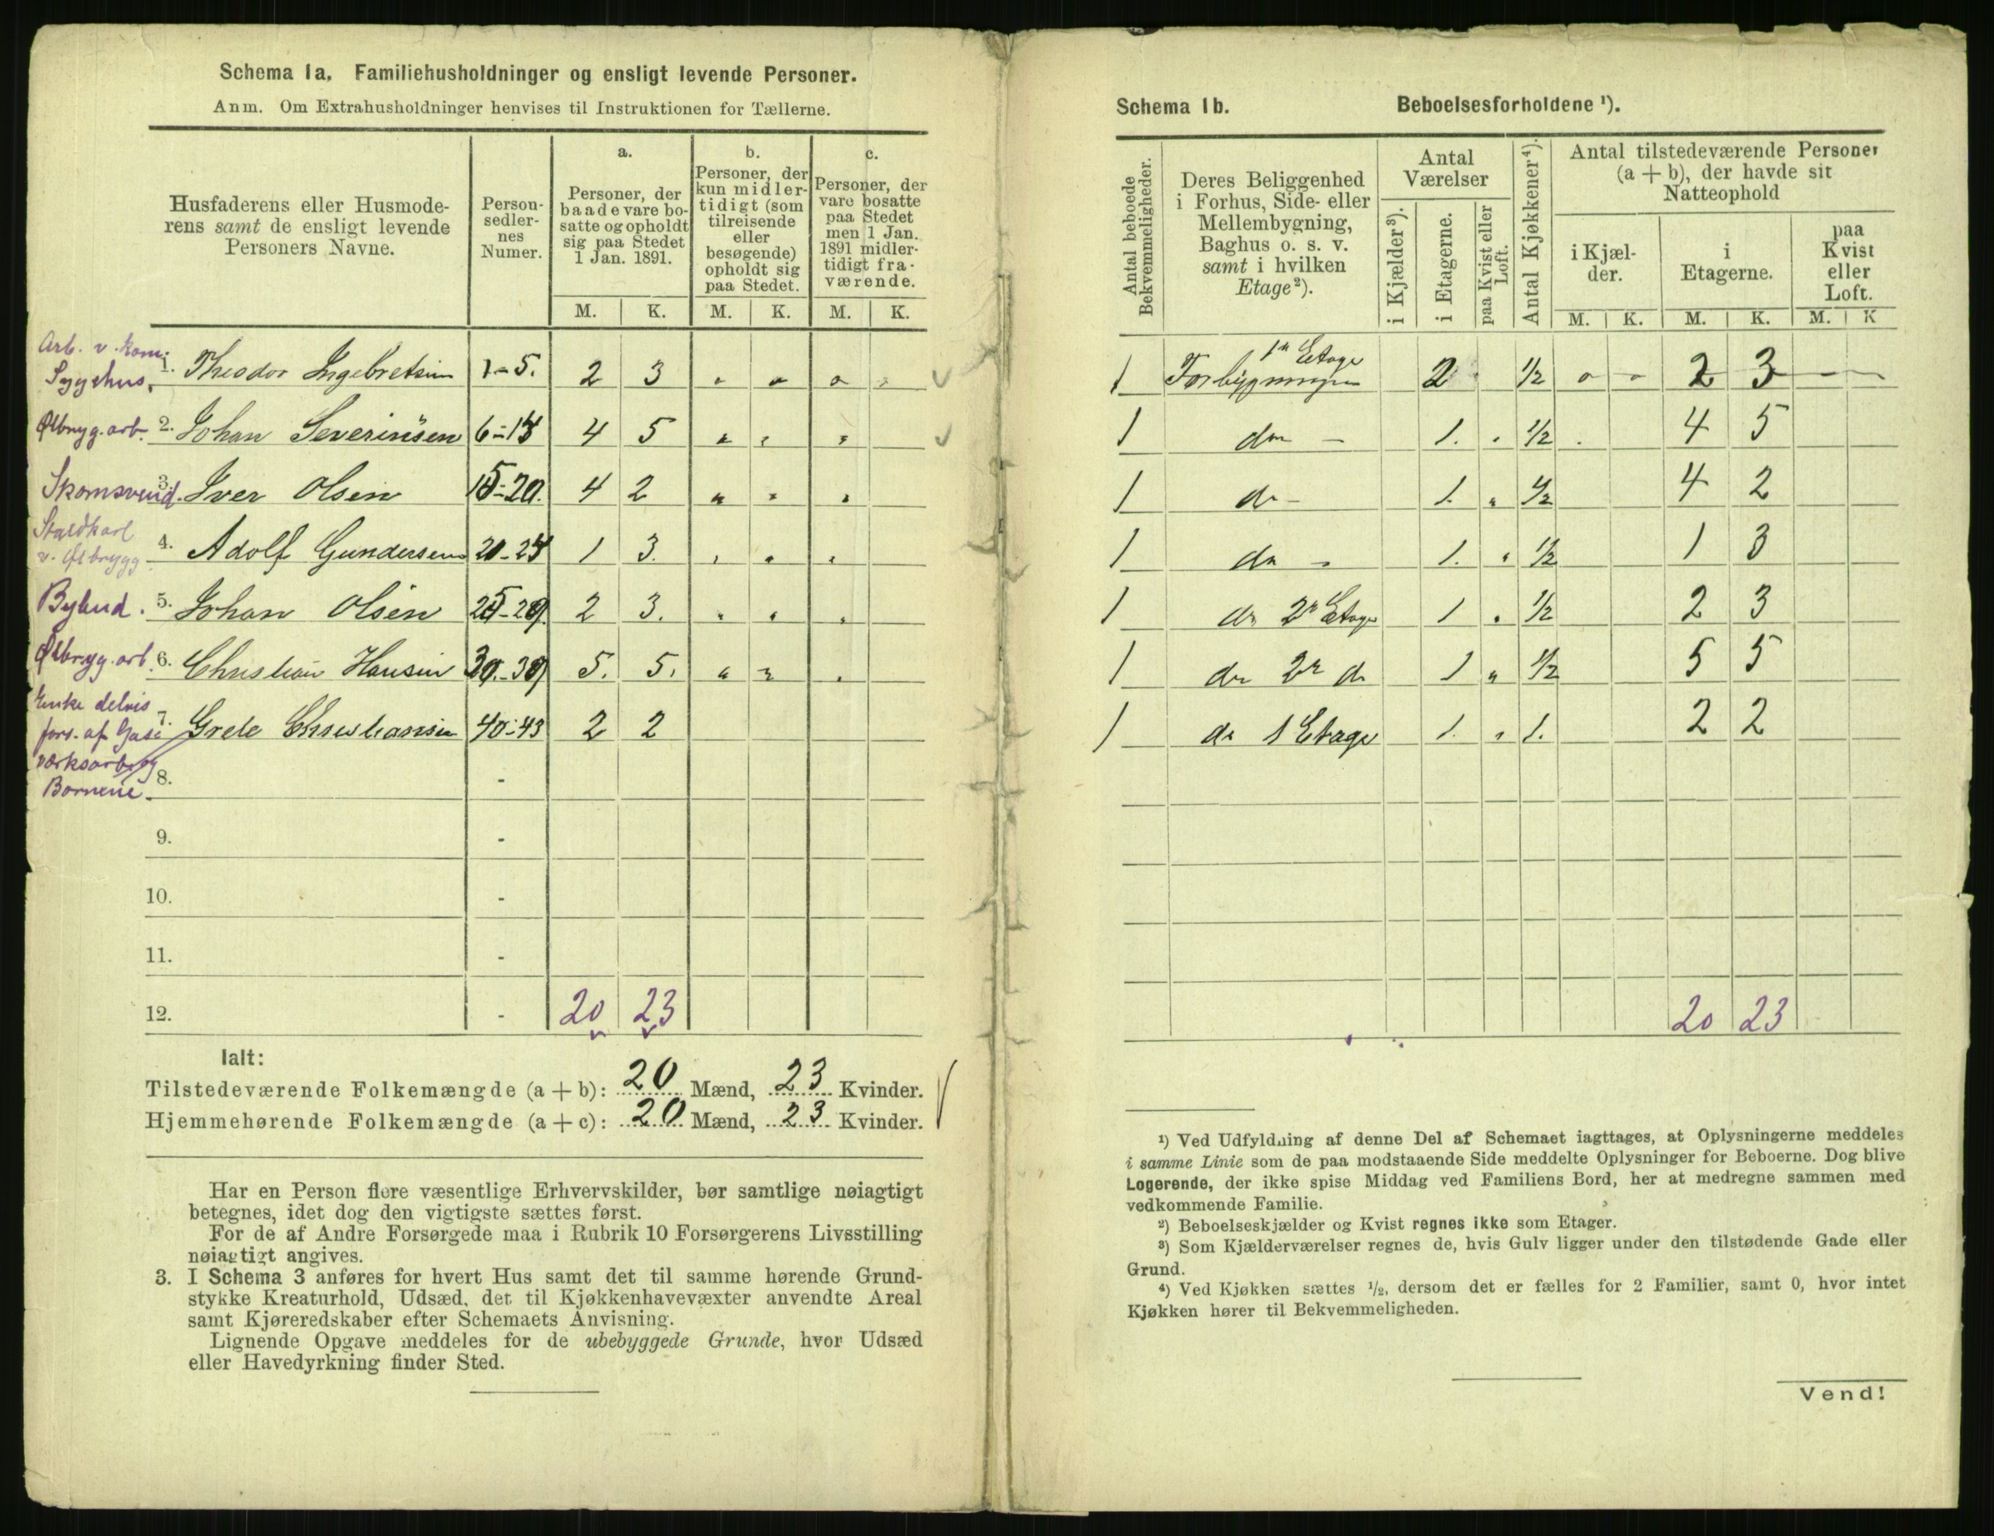 Schema 1a. Familiehusholdninger og ensligt levende Personer.
Anm. Om Extrahusholdninger henvises til Instruktionen for Tællerne.
Husfaderens eller Husmode-
rens samt de ensligt levende
Personers Navne.
Person-
sedler-
nes
Numer.
a.
Personer, der
baade vare bo-
satte og opholdt
sig paa Stedet
1 Jan. 1891.
b.
Personer, der
kun midler-
tidigt (som
tilreisende
eller
besøgende)
opholdt sig
paa Stedet.
c.
Personer, der
vare bosatte
paa Stedet
men 1 Jan.
1891 midler-
tidigt fra-
værende.
M. K. M. K. M. K.
Arb. v. kom:
Sygehus.
1. Theodor Ingebretsen 1-5. 2 3
Ølbryg. arb. 2. Johan Severinsen 6-14 4 5
Skomsvend. 3. Iver Olsen 15-20. 4 2
Staldkarl
v. Ølbrygg. 4. Adolf Gundersen 21-24 1 3.
Bybud. 5. Johan Olsen 25-29. 2 3.
Ølbryg. arb. 6. Christian Hansen 30-39 5. 5.
Enke delvis
fors. af Gas-
værksarb. og
Børnene.
7. Grete Christiansen 40-43 2 2
8. -
9. -
10. -
11. -
12. - 20 23
Ialt:
Tilstedeværende Folkemængde (a + b): 20 Mænd, 23 Kvinder.
Hjemmehørende Folkemængde (a + c): 20 Mænd, 23 Kvinder.
Har en Person flere væsentlige Erhvervskilder, bør samtlige nøiagtigt
betegnes, idet dog den vigtigste sættes først.
For de af Andre Forsørgede maa i Rubrik 10 Forsørgerens Livsstilling
nøiagtigt angives.
3. I Schema 3 anføres for hvert Hus samt det til samme hørende Grund-
stykke Kreaturhold, Udsæd, det til Kjøkkenhavevæxter anvendte Areal
samt Kjøreredskaber efter Schemaets Anvisning.
Lignende Opgave meddeles for de ubebyggede Grunde, hvor Udsæd
eller Havedyrkning finder Sted.
Schema 1b. Beboelsesforholdene ¹).
Antal beboede
Bekvemmeligheder.
Deres Beliggenhed
i Forhus, Side- eller
Mellembygning,
Baghus o. s. v.
samt i hvilken
Etage²).
Antal
Værelser
i Kjælder³).
i Etagerne.
paa Kvist eller
Loft.
Antal Kjøkkener⁴).
Antal tilstedeværende Personer
(a + b), der havde sit
Natteophold
i Kjæl-
der.
i
Etagerne.
paa
Kvist
eller
Loft.
M. K. M. K. M. K
1 Forbygningen 1ste Etage 2 ½ 2 3
1 do - 1. ½ 4 5
1 do - 1. ½ 4 2
1 do - 1. ½ 1 3
1 do 2n Etage 1 ½ 2 3
1 do 2n do 1 ½ 5 5
1 do 1 Etage 1. 1. 2 2
20 23
¹) Ved Udfyldning af denne Del af Schemaet iagttages, at Oplysningerne meddeles
i samme Linie som de paa modstaaende Side meddelte Oplysninger for Beboerne. Dog blive
Logerende, der ikke spise Middag ved Familiens Bord, her at medregne sammen med
vedkommende Familie.
²) Beboelseskjælder og Kvist regnes ikke som Etager.
³) Som Kjælderværelser regnes de, hvis Gulv ligger under den tilstødende Gade eller
Grund.
⁴) Ved Kjøkken sættes ½, dersom det er fælles for 2 Familier, samt 0, hvor intet
Kjøkken hører til Bekvemmeligheden.
Vend!